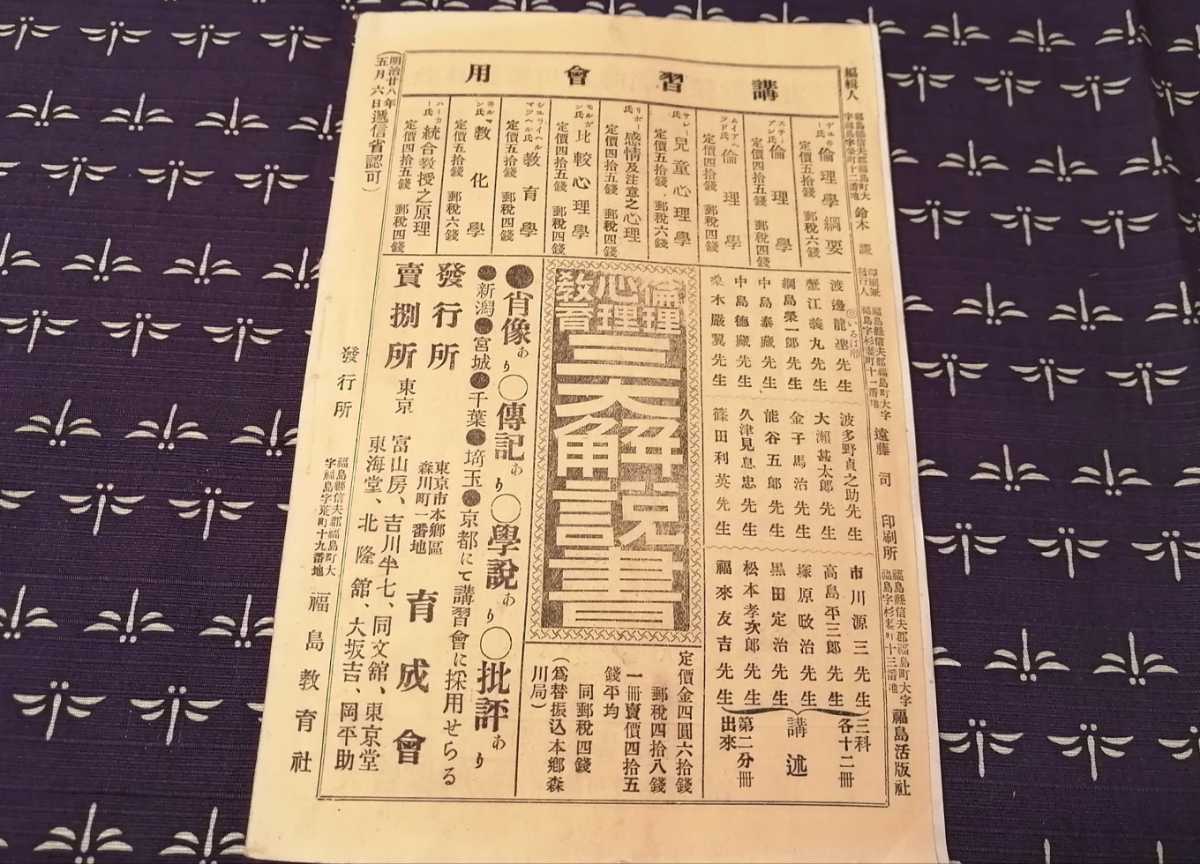 編輯人 福島縣信夫郡福島町大
鈴木
印刷兼
發行人 福島縣信夫郡福島町大字
福島字杉妻町十一番地 遠藤司
印刷所 福島縣信夫郡福島町大字
福島字杉妻町十三番地 福島活版社
講習會用
デュエー氏 倫理學綱要
定價五拾錢 郵稅六錢
倫理學
定價四拾五錢 郵稅四錢
ムイアヘツド氏 倫理學
定價四拾錢 郵稅四錢
サレー氏 兒童心理學
定價五拾錢 郵稅六錢
リボー氏 感情及注意之心理
定價四拾五錢 郵稅四錢
モルガン氏 比較心理學
定價四拾五錢 郵稅四錢
教育學
定價五拾錢 郵稅四錢
教化學
定價五拾錢 郵稅六錢
統合敎授之原理
定價四拾錢 郵稅四錢
渡邊龍聖先生
蟹江義丸先生
綱島榮一郎先生
中島泰藏先生
中島德藏先生
桑木嚴翼先生
波多野貞之助先生
大瀨甚太郎先生
金子馬治先生
熊谷五郎先生
久津見息忠先生
篠田利英先生
市川源三先生
高島平三郎先生
塚原政治先生
黑田定治先生
松本孝次郎先生
福來友吉先生
講述
三科
各十二冊
第二分冊
出來
倫理
心理
敎育
三大解說書
定價金四圓六拾錢
郵稅四拾八錢
一冊賣價四拾五
錢平均
同郵稅四錢
(爲替振込本鄕森
川局)
●肖像あり〇傳記あり〇學說あり〇批評あり
●新潟●宮城●千葉●埼玉●京都にて講習會に採用せらる
發行所 東京市本鄕區
森川町一番地 育成會
賣捌所 東京 富山房、吉川半七、同文舘、東京堂
東海堂、北隆舘、大坂吉、岡平助
發行所 福島縣信夫郡福島町大
字福島字荒町十九番地 福島教育社
(明治廿八年
五月六日遞信省認可)